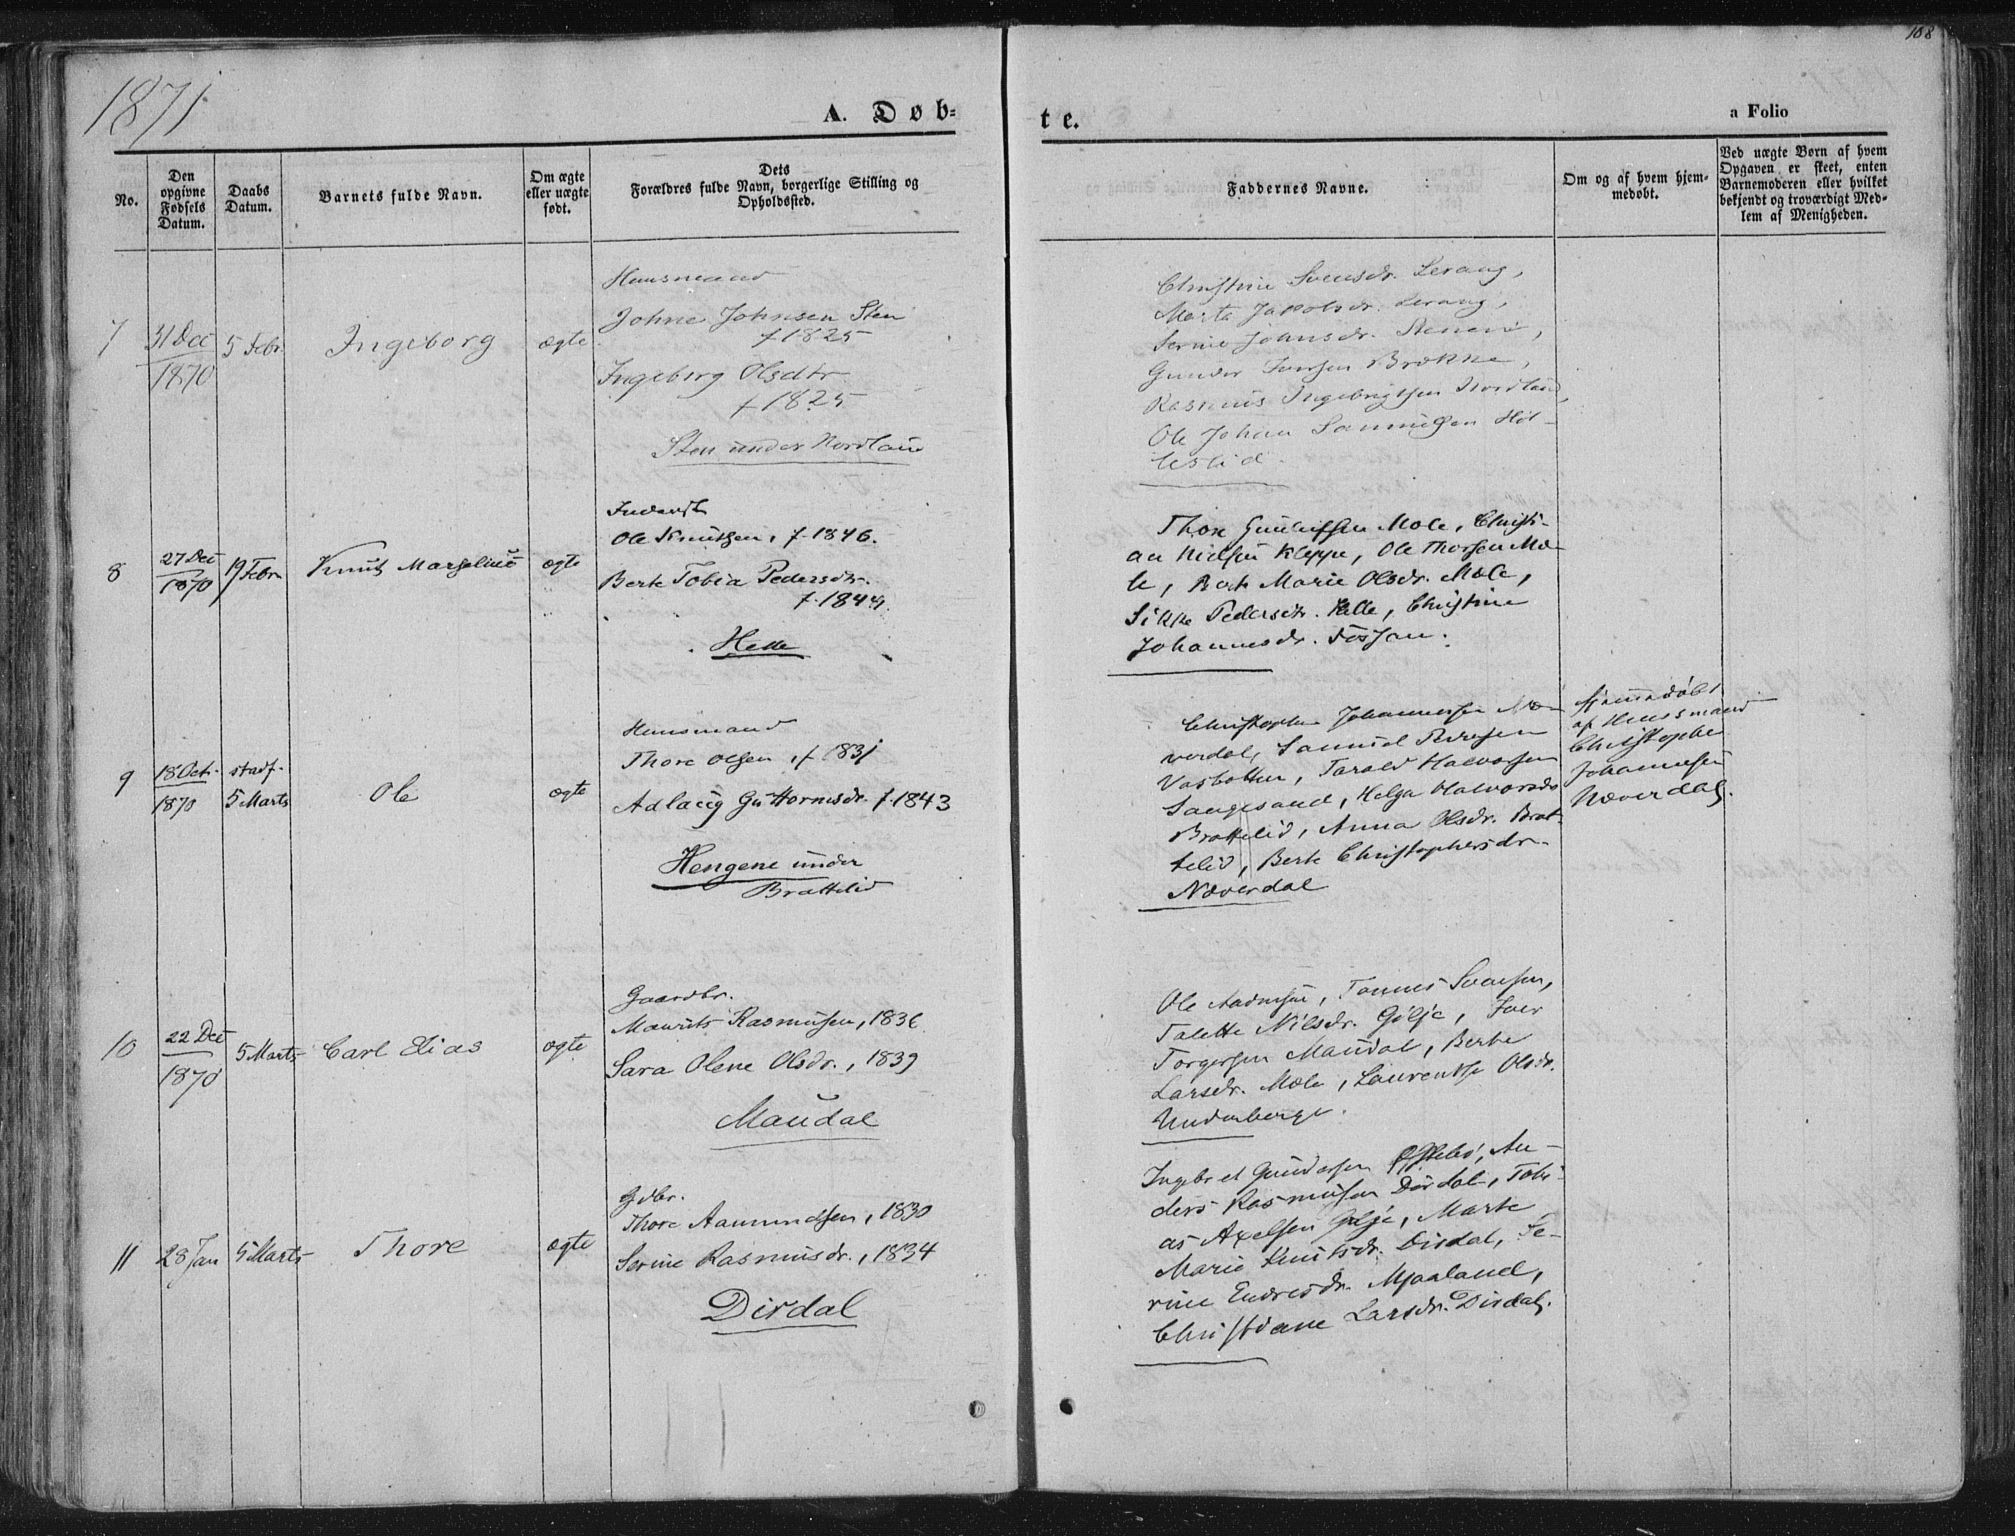 108
1871
A. Døb=
te.
a Folio
No.
Den
opgivne
Fødsels
Datum.
Daabs
Datum.
Barnets fulde Navn.
Om ægte
eller uægte
født.
Dets
Forældres fulde Navn, borgerlige Stilling og
Opholdssted.
Faddernes Navne.
Om og af hvem hjem-
medøbt.
Ved uægte Børn af hvem
Opgaven er skeet, enten
Barnemoderen eller hvilket
bekjendt og troværdigt Med-
lem af Menigheden.
7
31 Dec
1870
5 Febr.
Ingeborg
ægte
Huusmand
Johne Johnsen Sten
f 1825
Ingeborg Olsdtr
f 1825
Sten under Nordland
Christine Svensdr. Lerang,
Marta Jakobsdr. Lerang,
Serine Johnsdr.
Gunder Iversen Brække,
Rasmus Ingebrigtsen Nordland,
Ole Johan Samuelsen Høl-
leslid.
8
27 Dec
1870
19 Febr
Knut Margelius
ægte
Inderst
Ole Knutsen, f. 1846.
Berte Tobia Pedersdtr.
f. 1844.
Helle
Thore Mæle, Christi-
an Nielsen Kleppe, Ole Thorsen Mæ-
le, Berte Marie Olsdr. Mæle,
Sikke Pedersdtr. Helle, Christine
Johannesdr. Fossan.
9
18 Oct.
1870
stadf.
5 Marts
Ole
ægte
Huusmand
Thore Olsen, f 1831
Adlaug Guttormsdr. f. 1843
Hengene under
Brattelid
Christopher Johannesen Næ-
verdal, Samuel Pedersen
Vasbotten, Tarald Halvorsen
Songesand, Helga Halvorsdr
Brattelid, Anna Olsdr. Brat-
telid, Berte Christophersdr.
Næverdal
Hjemmedøbt
af Huusmand
Christopher
Johannesen
Næverdal.
10
22 Dec
1870
5 Marts
Carl Elias
ægte
Gaardbr.
Maurits Rasmusen, 1836
Sara Olene Olsdr., 1839
Maudal
Ole Aadnesen, Tønnes Svensen,
Talette Nilsdr. Gilje, Iver
Torgersen Maudal, Berte
Larsdr. Mæle, Laurentse Olsdr.
Underberge.
11
28 Jan
5 Marts
Thore
ægte
Gdbr.
Thore Aamundsen, 1830
Serine Rasmusdr., 1834
Dirdal
Ingebret Gundersen Østebø, An-
ders Rasmusen Dirdal, Tobi-
as Axelsen Gilje, Marte
Marie Knutsdr. Dirdal, Se-
rine Endresdr. Mjaaland,
Christiane Larsdr. Dirdal.